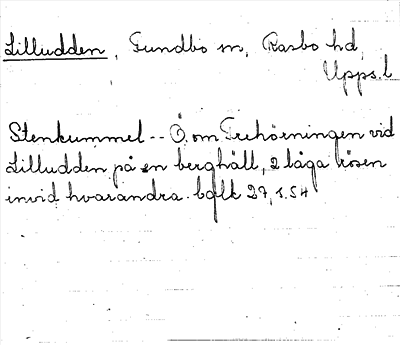 Lilludden, Gundbo m, Rasbo hd,
Upps. l
Stenkummel -- Ö. om Trehörningen vid
Lilludden på en berghäll, 2 låga rösen
invid hvarandra. bqlk 27, s. 54